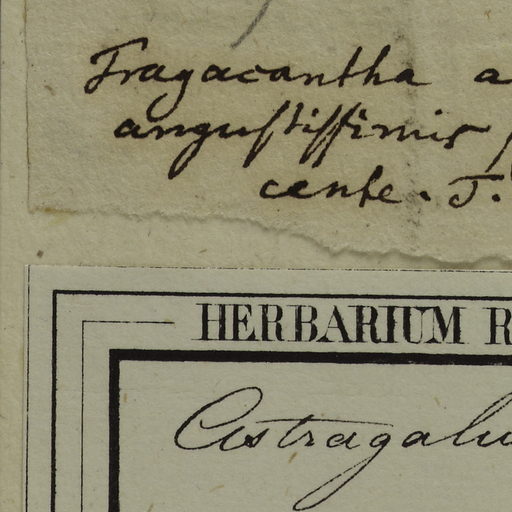 Tragacantha a
anguſtiſſimis
cente. T.
HERBARIUM R
Astragalu